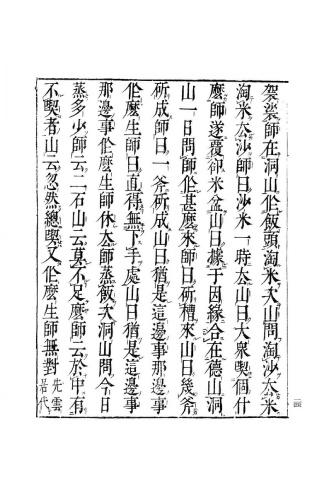 袈裟師在洞山作飯頭淘米次山問淘沙去米
淘米去沙師曰沙米一時去山曰大衆喫個什
麼師遂覆卻米盆山曰據子因緣合在德山洞
山一日問師作甚麼來師曰斫槽來山曰幾斧
斫成師曰一斧斫成山曰猶是這邊事那邊事
作麼生師曰直得無下手處山曰猶是這邊事
那邊事作麼生師休去師蒸飯次洞山問今日
蒸多少師云二石山云莫不足麼師云於中有
不喫者山云忽然總喫又作麼生師無對
先雲
居代